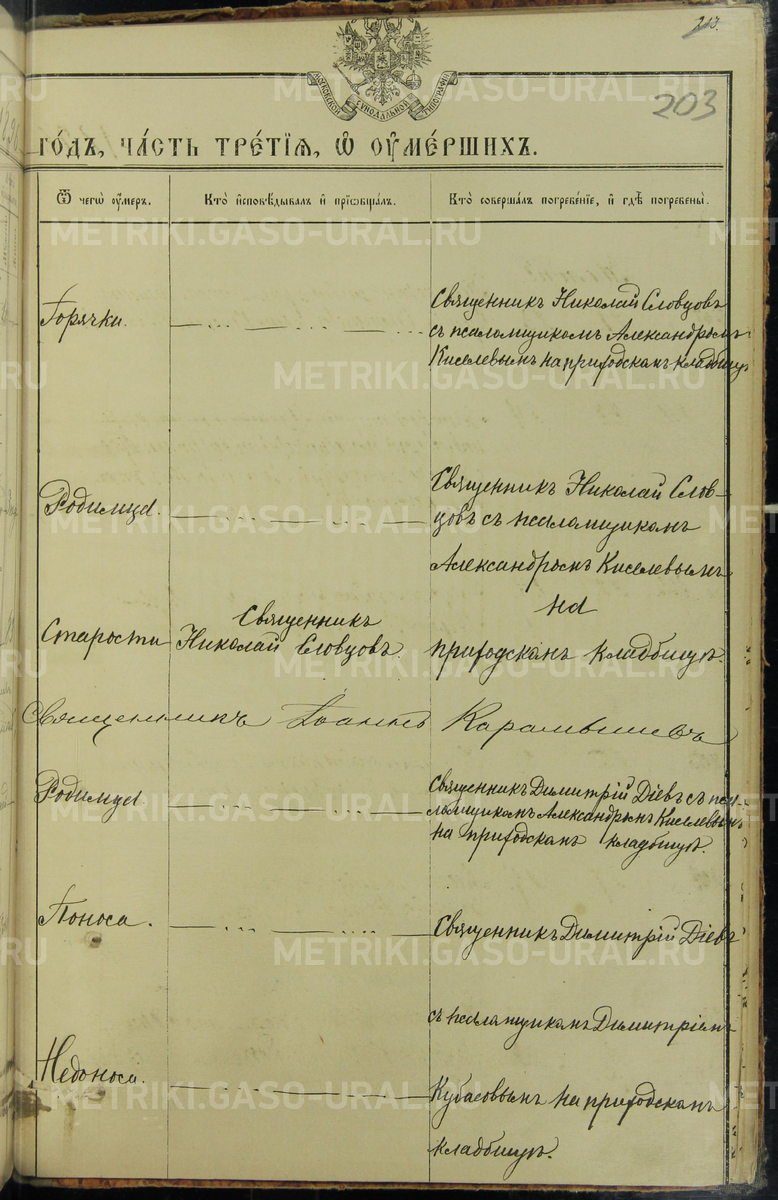 213.
203
МОСКОВСКОЙ СѴНОДАЛЬНОЙ ТИПОГРАФІИ
ГО́ДЪ, ЧА́СТЬ ТРЕ́ТІѦ, Ѡ҆ ОУ҆МЕ́РШИХЪ.
Ѿ чегѡ̀ оу҆́меръ.
Кто̀ и҆сповѣ́дывалъ и҆ прїѡбща́лъ.
Кто̀ соверша́лъ погребе́нїе, и҆ гдѣ̀ погребены̀.
Горячки
Священникъ Николай Словцовъ
съ псаломщикомъ Александромъ
Киселевымъ на приходскомъ кладбищѣ
Родимца.
Священникъ Николай Слов-
цовъ съ псаломщикомъ
Александромъ Киселевымъ
на
Старости
Священникъ
Николай Словцовъ.
приходскомъ кладбищѣ.
Священникъ Іоаннъ Карамышевъ
Родимца
Священникъ Димитрій Діевъ съ пса-
ломщикомъ Александромъ Киселевымъ
на приходскомъ кладбищѣ.
Поноса.
Священникъ Димитрій Діевъ
съ псаломщикомъ Димитріемъ
Недоноси.
Кубасовымъ на приходскомъ
кладбищѣ.
METRIKI.GASO-URAL.RU